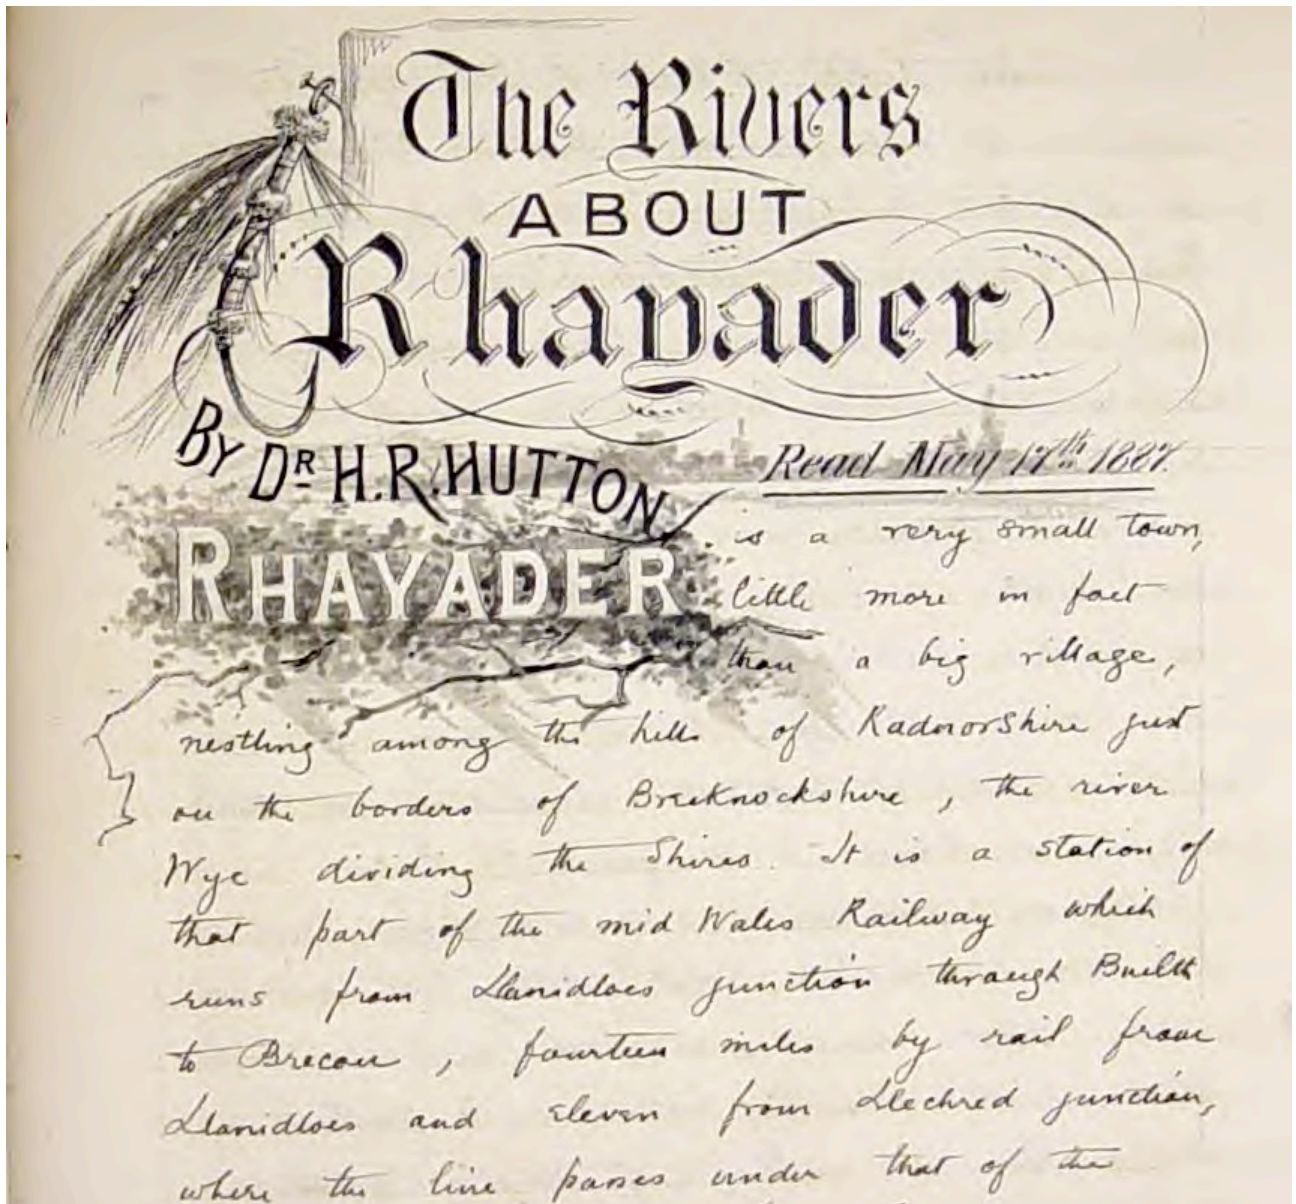 The Rivers
ABOUT
Rhayader
BY DR H.R. HUTTON
Read May 17th 1887.
RHAYADER is a very small town,
little more in fact
than a big village,
nestling among the hills of Radnorshire just
on the borders of Brecknockshire, the river
Wye dividing the Shires. It is a station of
that part of the mid Wales Railway which
runs from Llanidloes junction through Builth
to Brecon, fourteen miles by rail from
Llanidloes and eleven from Llechryd junction,
where the line passes under that of the